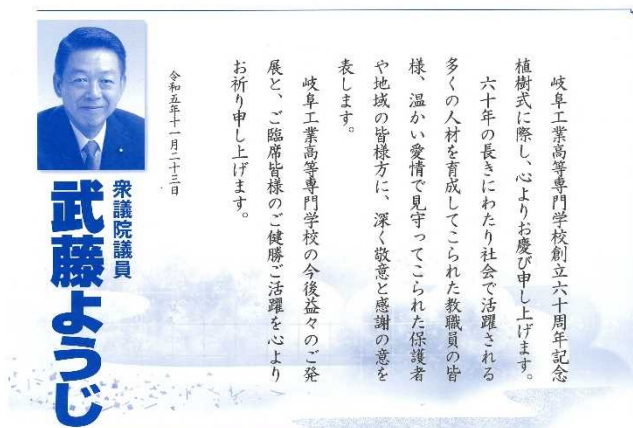 岐阜工業高等専門学校創立六十周年記念
植樹式に際し、心よりお慶び申し上げます。
六十年の長きにわたり社会で活躍される
多くの人材を育成してこられた教職員の皆
様、温かい愛情で見守ってこられた保護者
や地域の皆様方に、深く敬意と感謝の意を
表します。
岐阜工業高等専門学校の今後益々のご発
展と、ご臨席皆様のご健勝ご活躍を心より
お祈り申し上げます。
令和五年十一月二十三日
衆議院議員
武藤ようじ